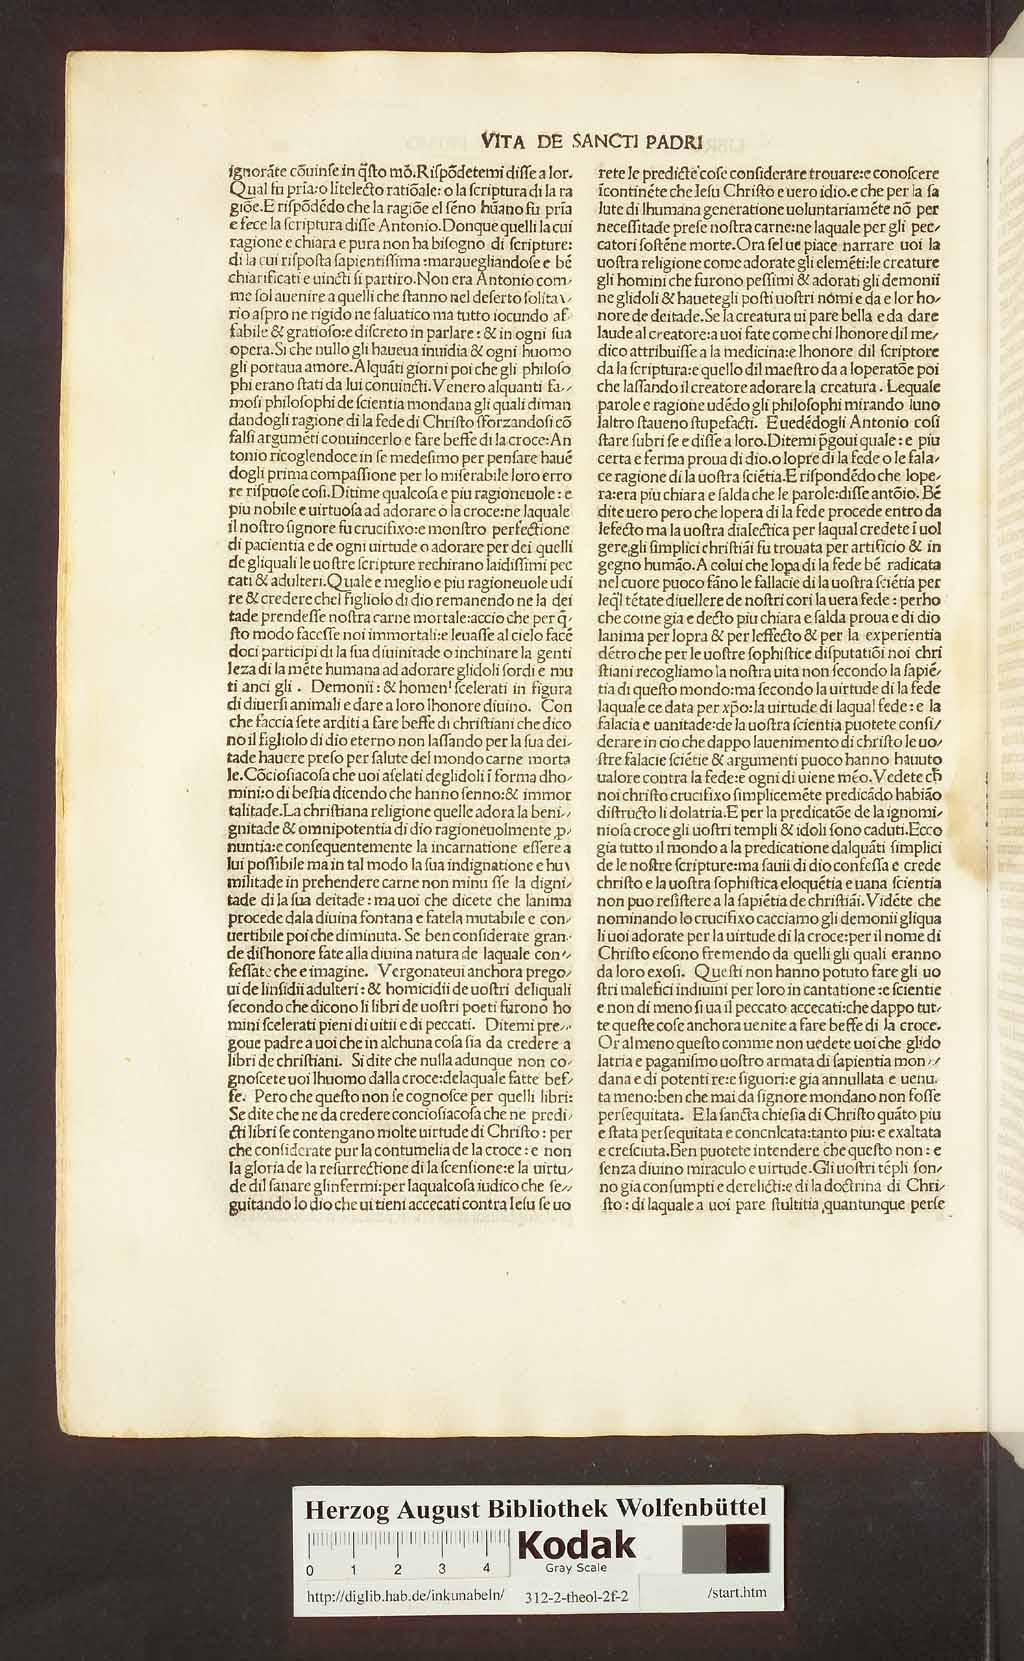 VITA DE SANCTI PADRI
ignorāte cōuinſe in q̄ſto mō.Riſpōdetemi diſſe a lor.
Qual fu pria:o litelecto ratiōale:o la ſcriptura di la ra
giōe.E riſpōdēdo che la ragiōe el ſēno hūano fu pria
e fece la ſcriptura diſſe Antonio.Donque quelli la cui
ragione e chiara e pura non ha biſogno di ſcripture:
di la cui riſpoſta ſapientiſſima:marauegliandoſe e bē
chiarificati e uincti ſi partiro.Non era Antonio com/
me ſol auenire a quelli che ſtanno nel deſerto ſolita/
rio aſpro ne rigido ne ſaluatico ma tutto iocundo af
fabile & gratioſo:e diſcreto in parlare:& in ogni ſua
opera.Si che nullo gli haueua inuidia & ogni huomo
gli portaua amore.Alquāti giorni poi che gli philoſo
phi erano ſtati da lui conuincti.Venero alquanti fa/
moſi philoſophi de ſcientia mondana gli quali diman
dandogli ragione di la fede di Chriſto ſforzandoſi cō
falſi argumēti conuincerlo e fare beffe di la croce:An
tonio ricoglendoce in ſe medeſimo per penſare hauē
dogli prima compaſſione per lo miſerabile loro erro
re riſpuoſe coſi.Ditime qualcoſa e piu ragioneuole:e
piu nobile e uirtuoſa ad adorare o la croce:ne laquale
il noſtro ſignore fu crucifixo:e monſtro perfectione
di pacientia e de ogni uirtude o adorare per dei quelli
de gliquali le uoſtre ſcripture rechirano laidiſſimi pec
cati & adulteri.Quale e meglio e piu ragioneuole udi
re & credere chel figliolo di dio remanendo ne la dei
tade prendeſſe noſtra carne mortale:accio che per q̄/
ſto modo faceſſe noi immortali:e leuaſſe al cielo facē
doci participi di la ſua diuinitade o inchinare la genti
leza di la mēte humana ad adorare glidoli ſordi e mu
ti anci gli . Demonii:& homeni ſcelerati in figura
di diuerſi animali e dare a loro lhonore diuino. Con
che faccia ſete arditi a fare beffe di chriſtiani che dico
no il figliolo di dio eterno non laſſando per la ſua dei/
tade hauere preſo per ſalute del mondo carne morta
le.Cōcioſiacoſa che uoi aſelati deglidoli ī forma dho/
mini:o di beſtia dicendo che hanno ſenno:& immor
talitade.La chriſtiana religione quelle adora la beni/
gnitade & omnipotentia di dio ragioneuolmente ,p/
nuntia:e conſequentemente la incarnatione eſſere a
lui poſſibile ma in tal modo la ſua indignatione e hu/
militade in prehendere carne non minu ſſe la digni/
tade di la ſua deitade:ma uoi che dicete che lanima
procede dala diuina fontana e fatela mutabile e con/
uertibile poi che diminuta. Se ben conſiderate gran/
de diſhonore fate alla diuina natura de laquale con/
feſſate che e imagine. Vergonateui anchora prego/
ui de linſidii adulteri:& homicidii de uoſtri deliquali
ſecondo che dicono li libri de uoſtri poeti furono ho
mini ſcelerati pieni di uitii e di peccati. Ditemi pre/
goue padre a uoi che in alchuna coſa ſia da credere a
libri de chriſtiani. Si dite che nulla adunque non co/
gnoſcete uoi lhuomo dalla croce:delaquale fatte bef/
fe. Pero che queſto non ſe cognoſce per quelli libri:
Se dite che ne da credere concioſiacoſa che ne predi/
cti libri ſe contengano molte uirtude di Chriſto:per
che conſiderate pur la contumelia de la croce:e non
la gloria de la reſurrectione di la ſcenſione:e la uirtu/
de dil ſanare glinfermi:per laqualcoſa iudico che ſe/
guitando lo dio che ui tieni accecati contra Ieſu ſe uo
rete le predicte coſe conſiderare trouare:e conoſcere
īcontinēte che Ieſu Chriſto e uero idio.e che per la ſa
lute di lhumana generatione uoluntariamēte nō per
neceſſitade preſe noſtra carne:ne laquale per gli pec/
catori ſoſtēne morte.Ora ſel ue piace narrare uoi la
uoſtra religione come adorate gli elemēti:le creature
gli homini che furono peſſimi & adorati gli demonii
ne glidoli & hauetegli poſti uoſtri nomi e da e lor ho/
nore de deitade.Se la creatura ui pare bella e da dare
laude al creatore:a uoi fate come chi lhonore dil me/
dico attribuiſſe a la medicina:e lhonore dil ſcriptore
da la ſcriptura:e quello dil maeſtro da a loperatōe poi
che laſſando il creatore adorare la creatura. Lequale
parole e ragione udēdo gli philoſophi mirando luno
laltro ſtaueno ſtupefacti. E uedēdogli Antonio coſi
ſtare ſubri ſe e diſſe a loro.Ditemi p̄goui quale:e piu
certa e ferma proua di dio.o lopre di la fede o le fala/
ce ragione di la uoſtra ſciētia.E riſpondēdo che lope/
ra:era piu chiara e ſalda che le parole:diſſe antōio. Bē
dite uero pero che lopera di la fede procede entro da
lefecto ma la uoſtra dialectica per laqual credete ī uol
gere,gli ſimplici chriſtiāi fu trouata per artificio & in
gegno humāo.A colui che lopa di la fede bē radicata
nel cuore puoco fāno le fallacie di la uoſtra ſciētia per
leq̄l tētate diuellere de noſtri cori la uera fede:perho
che come gia e decto piu chiara e ſalda proua e di dio
lanima per lopra & per leffecto & per la experientia
dētro che per le uoſtre ſophiſtice diſputatiōi noi chri
ſtiani recogliamo la noſtra uita non ſecondo la ſapiē/
tia di queſto mondo:ma ſecondo la uirtude di la fede
laquale ce data per xp̄o:la uirtude di laqual fede:e la
falacia e uanitade:de la uoſtra ſcientia puotete conſi/
derare in cio che dappo lauenimento di chriſto le uo/
ſtre falacie ſciētie & argumenti puoco hanno hauuto
ualore contra la fede:e ogni di uiene mēo.Vedete ch̄
noi chriſto crucifixo ſimplicemēte predicādo habiāo
diſtructo li dolatria.E per la predicatōe de la ignomi/
nioſa croce gli uoſtri templi & idoli ſono caduti.Ecco
gia tutto il mondo a la predicatione dalquāti ſimplici
de le noſtre ſcripture:ma ſauii di dio confeſſa e crede
chriſto e la uoſtra ſophiſtica eloquētia e uana ſcientia
non puo reſiſtere a la ſapiētia de chriſtiāi.Vidēte che
nominando lo crucifixo cacciamo gli demonii gliqua
li uoi adorate per la uirtude di la croce:per il nome di
Chriſto eſcono fremendo da quelli gli quali eranno
da loro exoſi. Queſti non hanno potuto fare gli uo
ſtri malefici indiuini per loro in cantatione:e ſcientie
e non di meno ſi ua il peccato accecati:che dappo tut/
te queſte coſe anchora uenite a fare beffe di la croce.
Or al meno queſto comme non uedete uoi che glido
latria e paganiſmo uoſtro armata di ſapientia mon/
dana e di potenti re:e ſiguori:e gia annullata e uenu.
ta meno:ben che mai da ſignore mondano non foſſe
perſequitata. E la ſancta chieſia di Chriſto quāto piu
e ſtata perſequitata e concnlcata:tanto piu:e exaltata
e creſciuta.Ben puotete intendere che queſto non:e
ſenza diuino miraculo e uirtude.Gli uoſtri tēpli ſon/
no gia conſumpti e derelicti:e di la doctrina di Chri/
ſto:di laquale a uoi pare ſtultitia ,quantunque perſe
Herzog August Bibliothek Wolfenbüttel
0 1 2 3 4
Kodak
Gray Scale
http://diglib.hab.de/inkunabeln/ 312-2-theol-2f-2 /start.htm